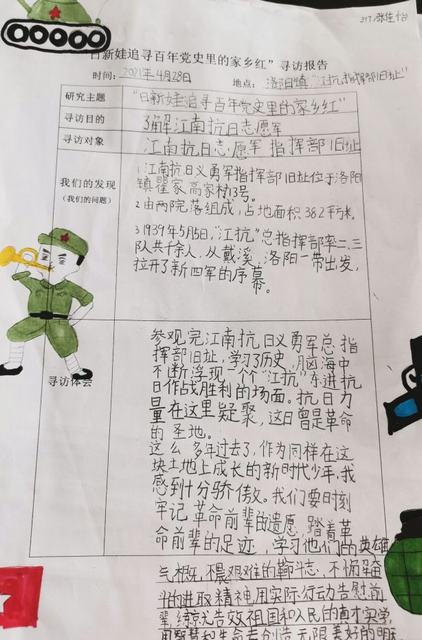 317,张佳怡
“日新娃追寻百年党史里的家乡红”寻访报告
时间：2021年4月28日 地点：洛阳镇“江抗指挥部旧址”
研究主题 “日新娃追寻百年党史里的家乡红”
寻访目的 了解江南抗日志愿军
寻访对象 江南抗日志愿军 指挥部旧址
我们的发现
（我们的问题）
1.江南抗日义勇军指挥部旧址位于洛阳
镇瞿家高家村13号。
2.由两院落组成，占地面积382平方米。
3.1939年5月5日，“江抗”总指挥部率二、三
队共千余人，从戴溪、洛阳一带出发，
拉开了新四军的序幕。
寻访体会
参观完江南抗日义勇军总指
挥部旧址，学习了历史，脑海中
不断浮现一个“江抗”东进抗
日作战胜利的场面。抗日力
量在这里凝聚，这日曾是革命
的圣地。
这么多年过去了，作为同样在这
块土地上成长的新时代少年，我
感到十分骄傲。我们要时刻
牢记革命前辈的遗愿，踏着革
命前辈的足迹，学习他们的英雄
气概，不畏艰难的奋斗志，不惧
的进取精神用实际行动告慰前
辈，练就报效祖国和人民的真才实学，
用智慧和生命去